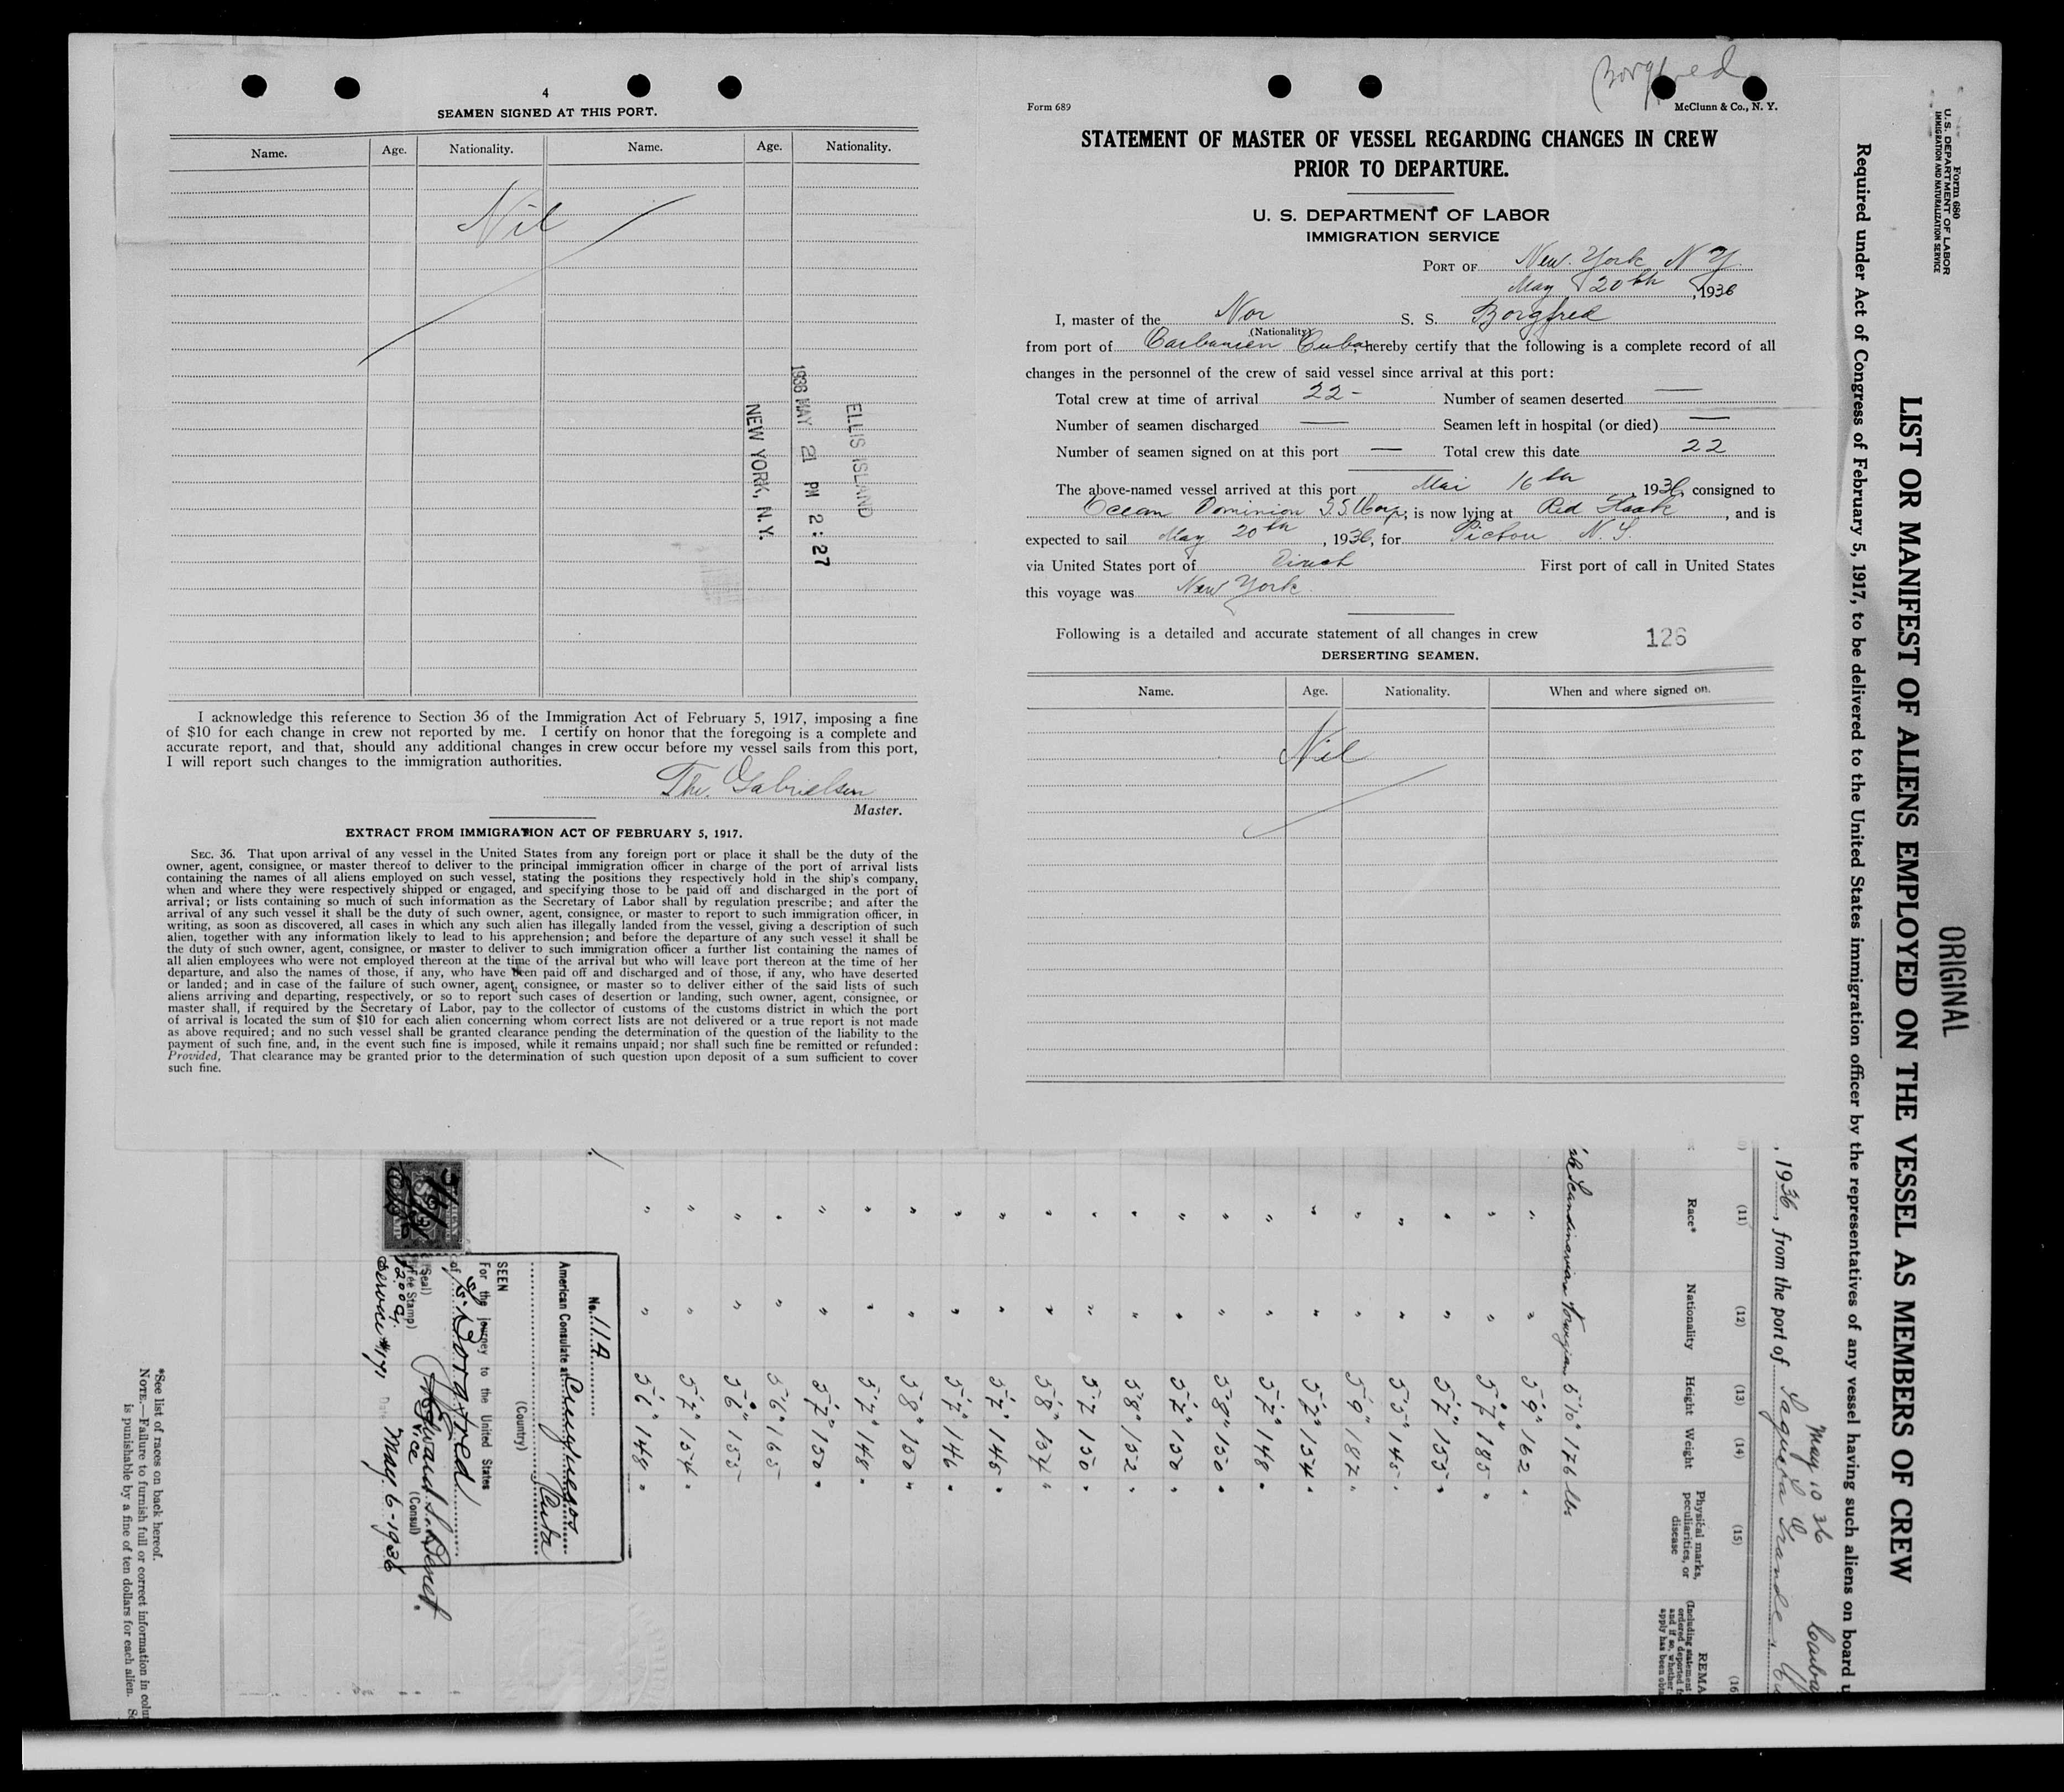 4
SEAMEN SIGNED AT THIS PORT.
Name. Age. Nationality. Name. Age. Nationality.
Nil
ELLIS ISLAND
1936 MAY 21 PM 2:27
NEW YORK, N.Y.
I acknowledge this reference to Section 36 of the Immigration Act of February 5, 1917, imposing a fine
of $10 for each change in crew not reported by me. I certify on honor that the foregoing is a complete and
accurate report, and that, should any additional changes in crew occur before my vessel sails from this port,
I will report such changes to the immigration authorities.
Th. Gabrielsen
Master.
EXTRACT FROM IMMIGRATION ACT OF FEBRUARY 5, 1917.
SEC. 36. That upon arrival of any vessel in the United States from any foreign port or place it shall be the duty of the
owner, agent, consignee, or master thereof to deliver to the principal immigration officer in charge of the port of arrival lists
containing the names of all aliens employed on such vessel, stating the positions they respectively hold in the ship's company,
when and where they were respectively shipped or engaged, and specifying those to be paid off and discharged in the port of
arrival; or lists containing so much of such information as the Secretary of Labor shall by regulation prescribe; and after the
arrival of any such vessel it shall be the duty of such owner, agent, consignee, or master to report to such immigration officer, in
writing, as soon as discovered, all cases in which any such alien has illegally landed from the vessel, giving a description of such
alien, together with any information likely to lead to his apprehension; and before the departure of any such vessel it shall be
the duty of such owner, agent, consignee, or master to deliver to such immigration officer a further list containing the names of
all alien employees who were not employed thereon at the time of the arrival but who will leave port thereon at the time of her
departure, and also the names of those, if any, who have been paid off and discharged and of those, if any, who have deserted
or landed; and in case of the failure of such owner, agent, consignee, or master so to deliver either of the said lists of such
aliens arriving and departing, respectively, or so to report such cases of desertion or landing, such owner, agent, consignee, or
master shall, if required by the Secretary of Labor, pay to the collector of customs of the customs district in which the port
of arrival is located the sum of $10 for each alien concerning whom correct lists are not delivered or a true report is not made
as above required; and no such vessel shall be granted clearance pending the determination of the question of the liability to the
payment of such fine, and, in the event such fine is imposed, while it remains unpaid; nor shall such fine be remitted or refunded:
Provided, That clearance may be granted prior to the determination of such question upon deposit of a sum sufficient to cover
such fine.
Borgfred
Form 689 McClunn & Co., N. Y.
STATEMENT OF MASTER OF VESSEL REGARDING CHANGES IN CREW
PRIOR TO DEPARTURE.
U. S. DEPARTMENT OF LABOR
IMMIGRATION SERVICE
PORT OF New York N Y
May 20th, 1936
I, master of the Nor S. S. Borgfred
(Nationality)
from port of Caibarien Cuba, hereby certify that the following is a complete record of all
changes in the personnel of the crew of said vessel since arrival at this port:
Total crew at time of arrival 22 - Number of seamen deserted —
Number of seamen discharged — Seamen left in hospital (or died) —
Number of seamen signed on at this port — Total crew this date 22
The above-named vessel arrived at this port Mai 16th, 1936, consigned to
Ocean Dominion SS Corp, is now lying at Red Hook, and is
expected to sail May 20th, 1936, for Pictou N. S.
via United States port of Direct First port of call in United States
this voyage was New York
Following is a detailed and accurate statement of all changes in crew
126
DERSERTING SEAMEN.
Name. Age. Nationality. When and where signed on.
Nil
Form 680
U. S. DEPARTMENT OF LABOR
IMMIGRATION AND NATURALIZATION SERVICE
ORIGINAL
LIST OR MANIFEST OF ALIENS EMPLOYED ON THE VESSEL AS MEMBERS OF CREW
Required under Act of Congress of February 5, 1917, to be delivered to the United States immigration officer by the representatives of any vessel having such aliens on board u
May 10 36
, 1936, from the port of Sagua la Grande
(11) (12) (13) (14) (15) (16
Race* Nationality Height Weight Physical marks, peculiarities, or disease REMA
Scandinavian Norwegian 5'10" 176 lbs
" " 5'9" 162 "
" " 5'7" 185 "
" " 5'7" 155 "
" " 5'5" 145 "
" " 5'9" 187 "
" " 5'7" 154 "
" " 5'7" 148 "
" " 5'8" 150 "
" " 5'7" 150 "
" " 5'8" 152 "
" " 5'7 150 "
" " 5'8" 134 "
" " 5'7" 145 "
" " 5'7" 146 "
" " 5'8" 150 "
" " 5'7" 148 "
" " 5'7" 150 "
" " 5'6" 165
" " 5'6" 155
" " 5'7" 154 "
" " 5'6" 148 "
No. 114
American Consulate at Cienfuegos
Cuba
(Country)
SEEN
For the journey to the United States
of S/S. Borgfred
Edward S. Benet
Vice (Consul)
(Seal)
(Fee Stamp)
Service #171 Date May 6 - 1936
*See list of races on back hereof.
NOTE.—Failure to furnish full or correct information in colu
is punishable by a fine of ten dollars for each alien.